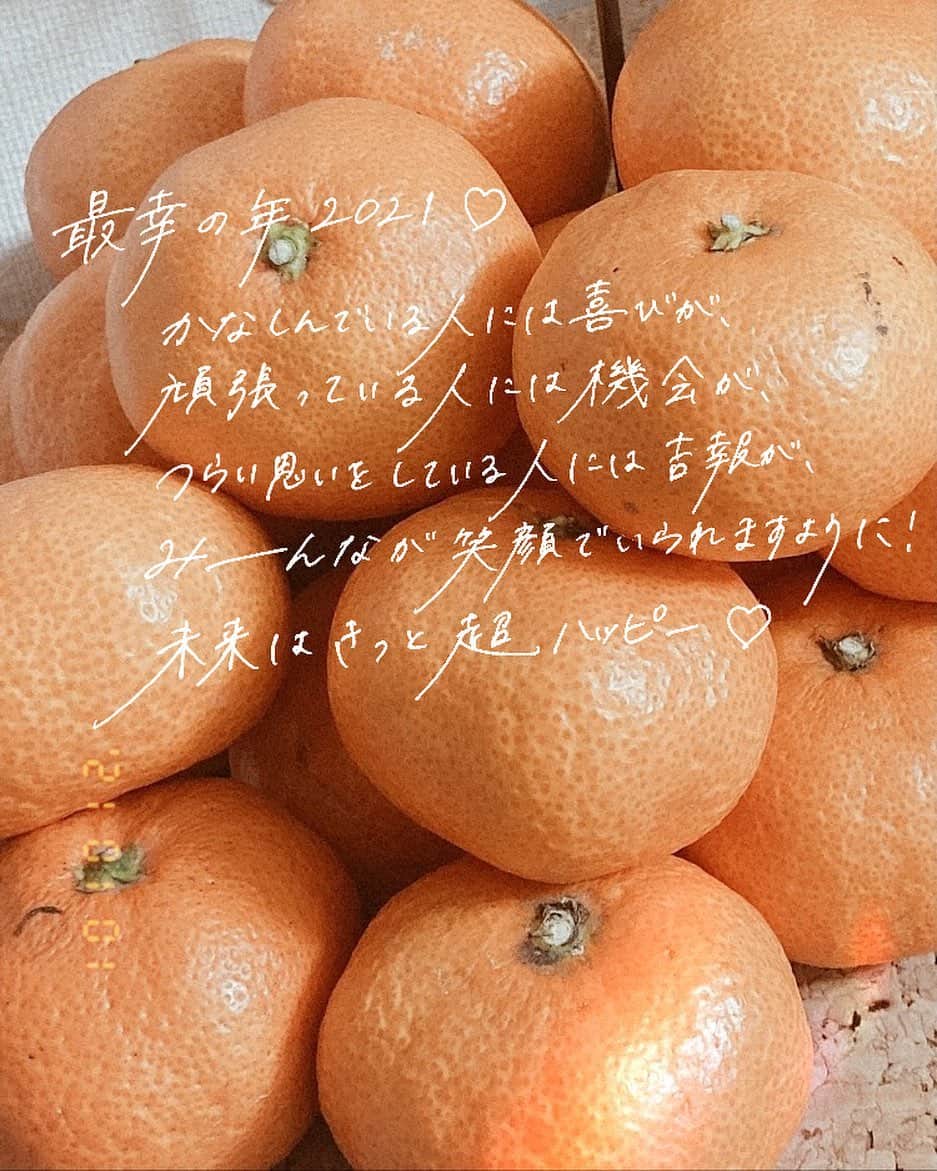 最幸の年2021♡
かなしんでいる人には喜びが、
頑張っている人には機会が、
つらい思いをしている人には吉報が、
みーんなが笑顔でいられますように!
未来はきっと超ハッピー♡
'21 01 01